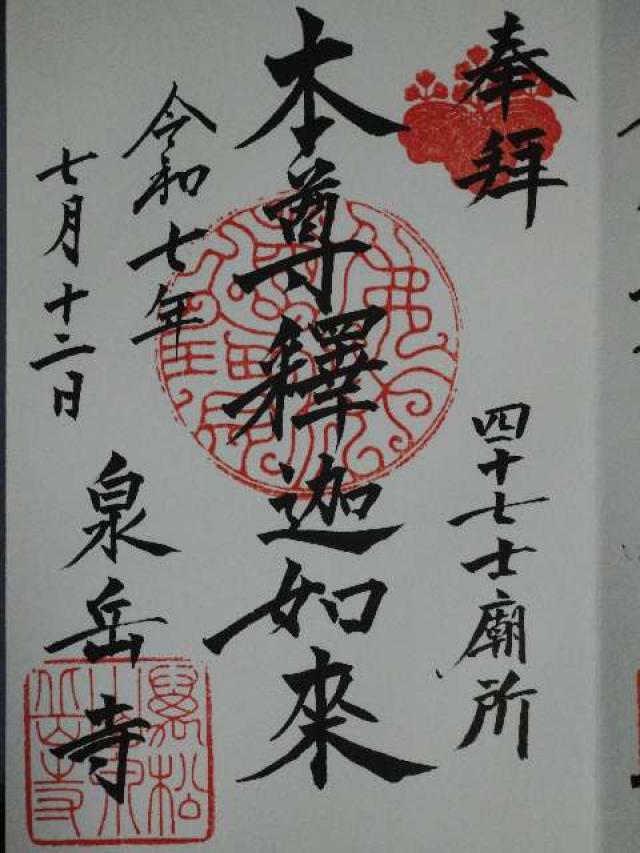 奉拜
四十七士廟所
本尊釋迦如來
令和七年
七月十二日
泉岳寺